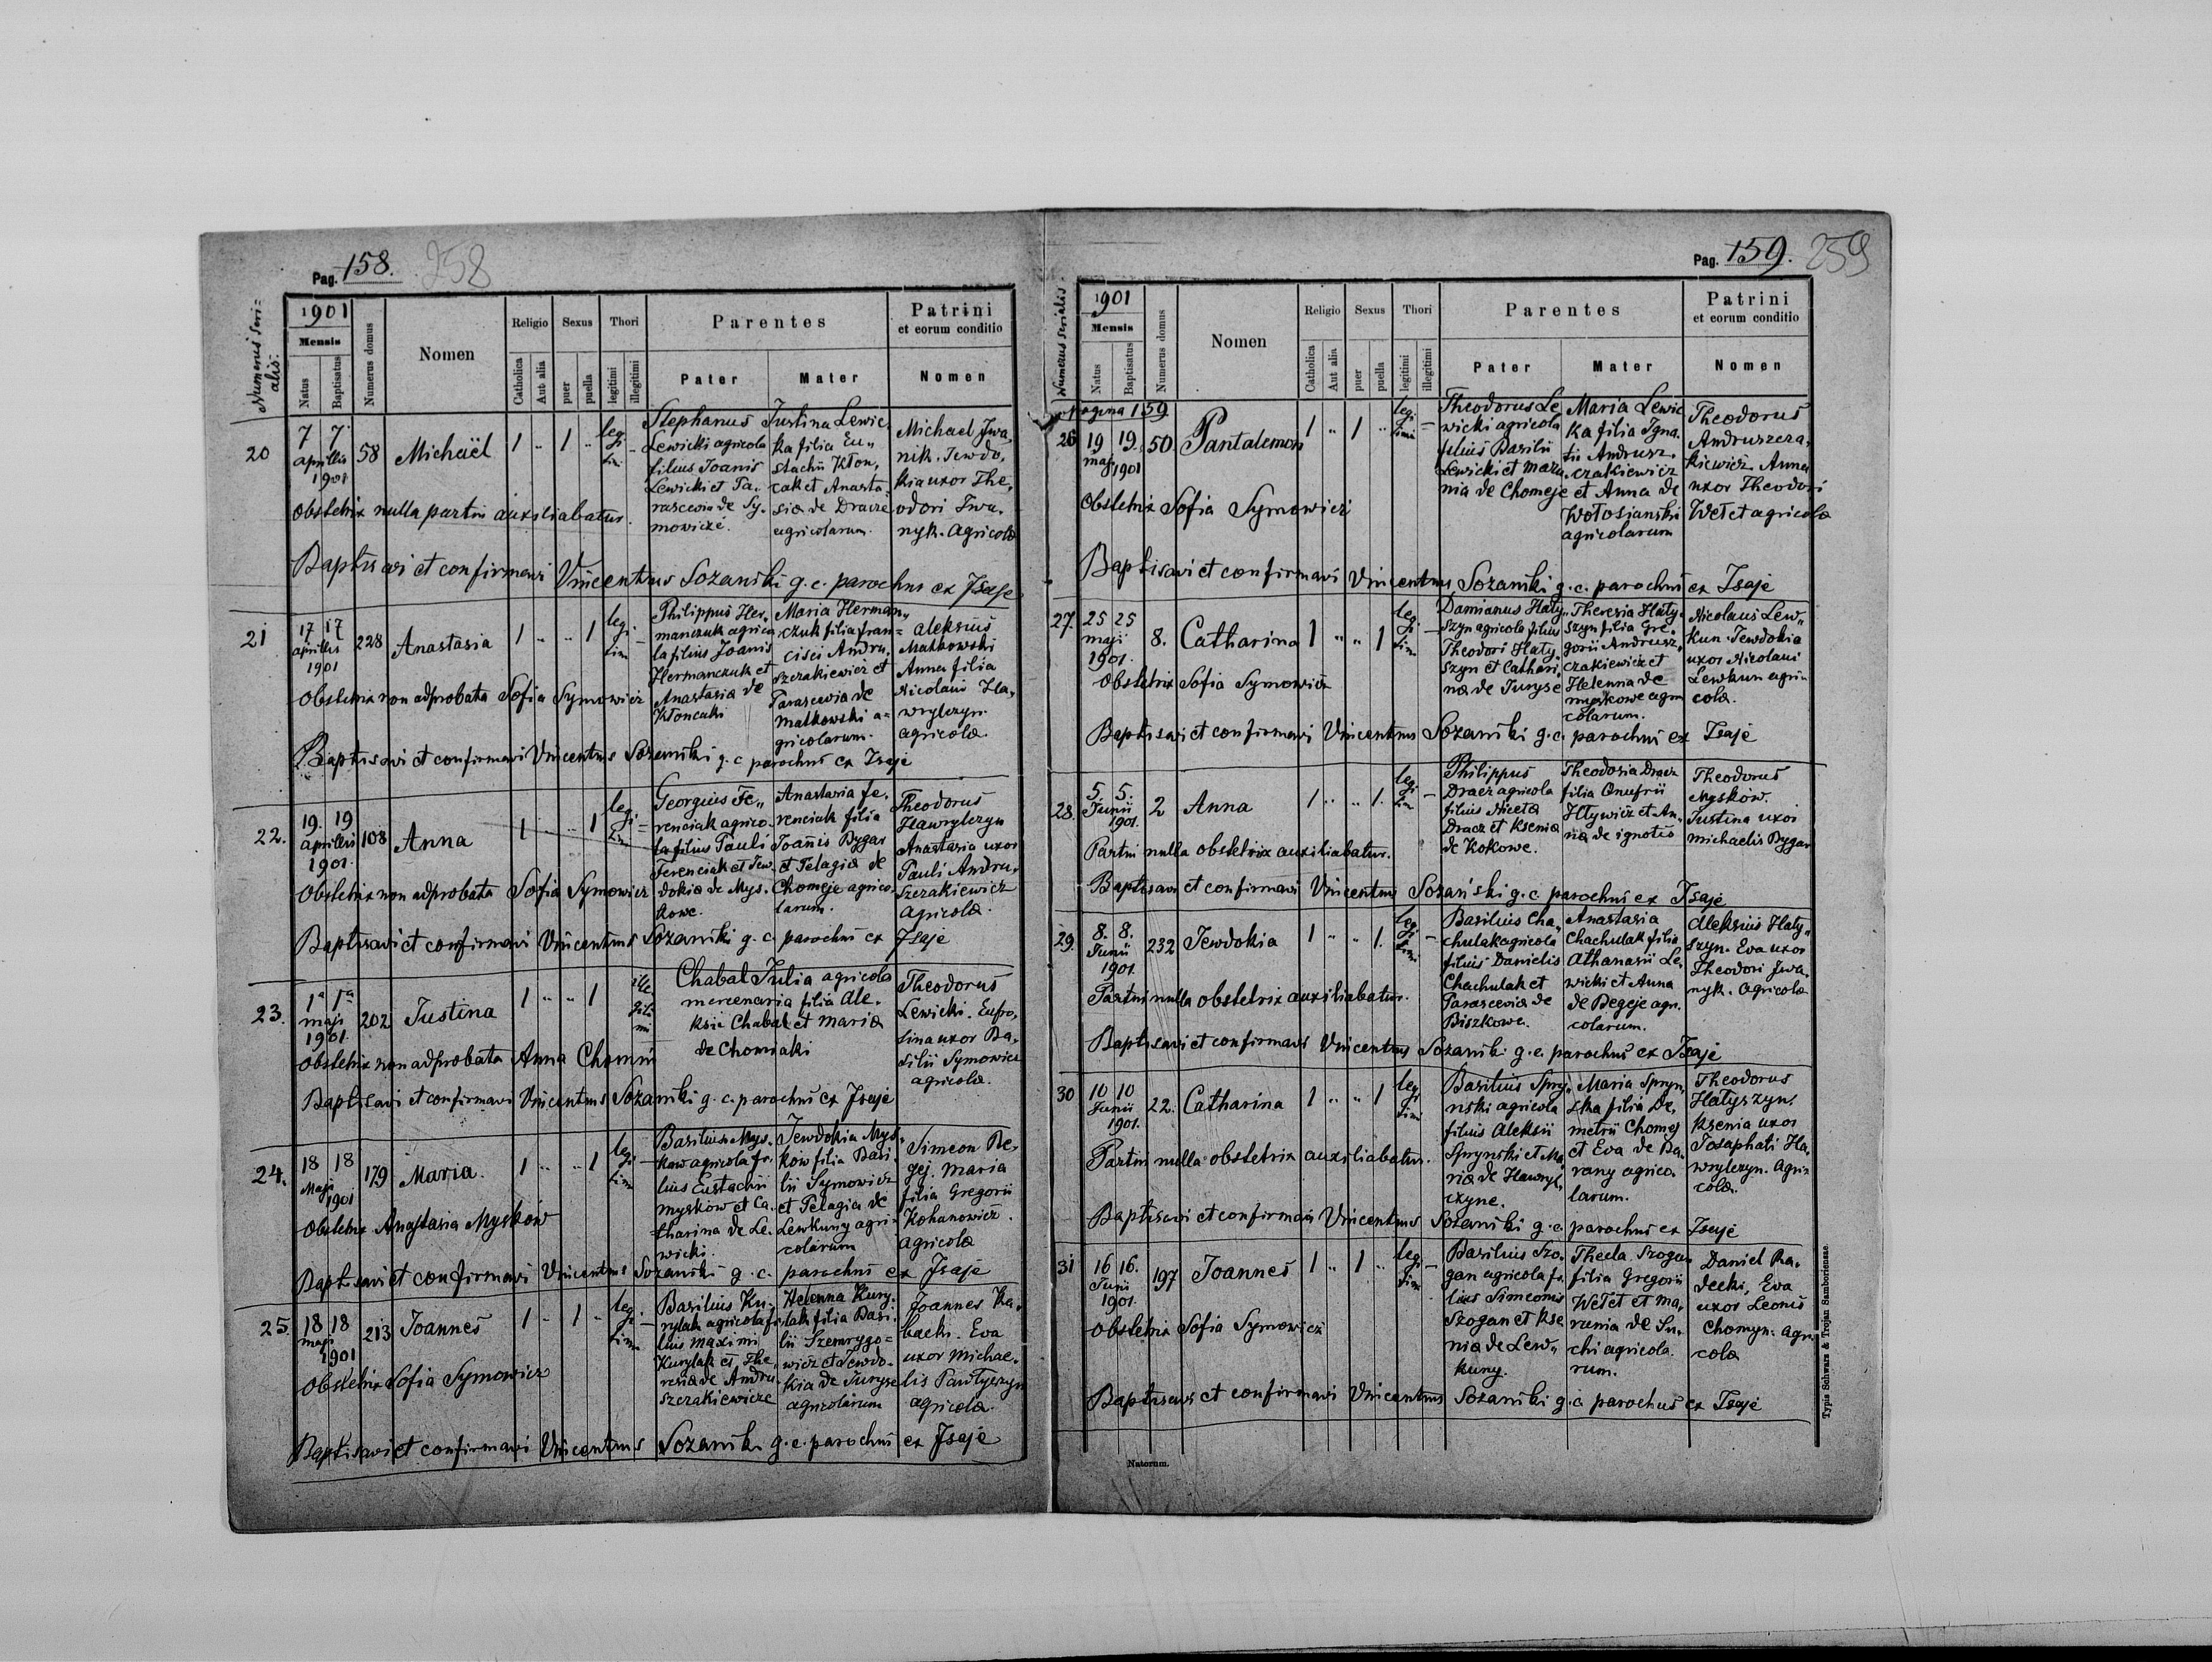 Pag. 158. 258
Numerus seri=
alis.
1901
Mensis
Natus
Baptisatus
Numerus domus
Nomen
Religio
Catholica
Aut alia
Sexus
puer
puella
Thori
legitimi
illegitimi
Parentes
Pater
Mater
Patrini
et eorum conditio
Nomen
20
7 7
aprilis
1901
58
Michaël
1 .. 1 ..
legi
tim
Stephanus
Lewicki agricola
filius Joanis
Lewicki et Pa-
rascevia de Sy-
mowicze.
Justina Lewic
ka filia Eu„
stachii Kłon,
cak et Anasta,
sia de Dracze
agricolarum
Michael Iwa,
nik. Jewdo,
kia uxor The,
odori Iwa,
nyk. Agricolæ
Obstetrix nulla partui auxiliabatur.
Baptisavi et confirmavi Vincentius Sozanski g. c. parochus ex Isaje
21
17 17
aprilis
1901
228
Anastasia
1 .. .. 1
legi
tim
Philippus Her,
manczuk agrico
la filius Joanis
Hermanczuk et
Anastasia de
Kłoncaki
Maria Herman„
czuk filia Fran=
cisci Andru,
szczakiewicz et
Parascevia de
Matkowski a=
gricolarum.
Aleksius
Matkowski
Anna filia
Nicolaus Ha,
wrylczyn.
agricolæ.
Obstetrix non adprobata Sofia Symowicz
Baptisavi et confirmavi Vincentius Sozanski g. c parochus ex Isaje
22.
19. 19
aprilis
1901.
108
Anna
1 .. .. 1
legi
tim
Georgius Fe„
renciak agrico-
la filius Pauli
Ferenciak et Jew-
dokia de Mys-
kowe.
Anastasia Fe,
renciak filia
Joannis Bygar
et Pelagia de
Chomeje agrico-
larum.
Theodorus
Hawrylczyn
Anastasia uxor
Pauli Andru,
szczakiewicz
agricolæ.
Obstetrix non adprobata Sofia Symowicz
Baptisavi et confirmavi Vincentius Sozanski g. c. parochus ex Isaje
23.
1a 1a
maji
1901.
202
Justina
1 .. .. 1
ille
giti
mi
Chabal Julia agricola
mercenaria filia Ale,
ksii Chabal et Maria
de Chomiaki
Theodorus
Lewicki. Eufro,
sina uxor Ba,
silii Symowicz
agricolæ.
Obstetrix non adprobata Anna Chomin
Baptisavi et confirmavi Vincentius Sozanski g. c. parochus ex Isaje
24.
18 18
Maji
1901
179
Maria.
1 .. .. 1
legi
tim
Basilius Mys-
kow agricola fi-
lius Eustachii
Myskow et Ca-
tharina de Le-
wicki.
Jewdokia Mys„
kow filia Basi-
lii Symowicz
et Pelagia de
Lewkuny agri-
colarum
Simeon Be,
gej. Maria
filia Gregorii
Kohanowicz.
Agricolæ
Obstetrix Anastasia Myskow
Baptisavi et confirmavi Vincentius Sozanski g. c. parochus ex Isaje
25.
18 18
maji
1901
213
Joannes
1 - 1 -
legi
tim
Basilius Ku-
rylak agricola fi-
lius Maximi
Kurylak et The„
resia de Andru-
szczakiewicze
Helenna Kury-
lak filia Basi-
lii Szemrygo=
wicz et Jewdo-
kia de Juryse
agricolarum
Joannes Ka,
backi. Eva
uxor Michae-
lis Pawlyczyn
agricolæ.
Obstetrix Sofia Symowicz
Baptisavi et confirmavi Vincentius Sozanski g. c. parochus ex Isaje
Pag. 159. 259
Numerus serialis
1901
Mensis
Natus
Baptisatus
Numerus domus
Nomen
Religio
Catholica
Aut alia
Sexus
puer
puella
Thori
legitimi
illegitimi
Parentes
Pater
Mater
Patrini
et eorum conditio
Nomen
Pagina 159
26
19 19.
maji
1901
50
Pantalemon
1 .. 1 ..
legi
timi
Theodorus Le
wicki agricola
filius Basilii
Lewicki et Maria-
nia de Chomeje
Maria Lewic
ka filia Igna-
tii Andrusz-
czakiewicz
et Anna de
Wołosianski
agricolarum
Theodorus
Andruszcza,
kiewicz. Anna
uxor Theodori
Wełet agricolæ
Obstetrix Sofia Symowicz
Baptisavi et confirmavi Vincentius Sozanski g. c. parochus ex Isaje
27.
25 25
maji
1901.
8.
Catharina
1 .. .. 1
legi
tim
Damianus Haty„
szyn agricola filius
Theodori Haty,
szyn et Cathari,
na de Juryse
Theresia Haty-
szyn filia Gre-
gorii Andrusz,
czakiewicz et
Helenna de
myskowe agri
colarum.
Nicolaus Lew„
kun. Jewdokia
uxor Nicolaui
Lewkun agri-
colæ.
Obstetrix Sofia Symowicz
Baptisavi et confirmavi Vincentius Sozanski g. c. parochus ex Isaje
28.
5. 5.
Junii
1901.
2
Anna
1 .. .. 1.
legi
tim
Philippus
Dracz agricola
filius Niceta
Dracz et Ksenia
de Kokowe.
Theodosia Dracz
filia Onufrii
Hływicz et An-
na de ignotis
Theodorus
Myskow.
Justina uxor
Michaelis Bygar
Partui nulla obstetrix auxiliabatur.
Baptisavi et confirmavi Vincentius Sozański g. c. parochus ex Isaje
29.
8. 8.
Junii
1901.
232
Jewdokia
1 .. .. 1.
legi
timi
Basilius Cha„
chulak agricola
filius Danielis
Chachulak et
Parascevia de
Biszkowe.
Anastasia
Chachulak filia
Athanasii Le,
wicki et Anna
de Begeje agri-
colarum.
Aleksius Haty„
szyn. Eva uxor
Theodori Iwa,
nyk. Agricolæ
Partui nulla obstetrix auxiliabatur.
Baptisavi et confirmavi Vincentius Sozanski g. c. parochus ex Isaje
30
10 10
Junii
1901.
22.
Catharina
1 .. .. 1
legi
tim
Basilius Spry„
nski agricola
filius Aleksii
Sprynski et Ma,
ria de Hawryl,
czyne.
Maria Spryn„
ska filia De,
metrii Chomej
et Eva de Ba,
rany agrico-
larum.
Theodorus
Hatyszyn,
Ksenia uxor
Josaphati Ha,
wrylczyn. Agri=
colæ.
Partui nulla obstetrix auxiliabatur.
Baptisavi et confirmavi Vincentius Sozanski g. c. parochus ex Isaje
31
16 16.
Junii
1901.
197
Joannes
1 .. 1 ..
legi
tim
Basilius Szo-
gan agricola fi-
lius Simeonis
Szogan et Kse
nia de Lew„
kuny.
Thecla Szogan
filia Gregorii
Wełet et Ma,
renia de Su,
chi agricola-
rum.
Daniel Ra-
decki, Eva
uxor Leonis
Chomyn. Agri-
colæ
Obstetrix Sofia Symowicz
Baptisavi et confirmavi Vincentius Sozanski g. c. parochus ex Isaje
Natorum.
Typis Schwarz & Trojan Samboriensae